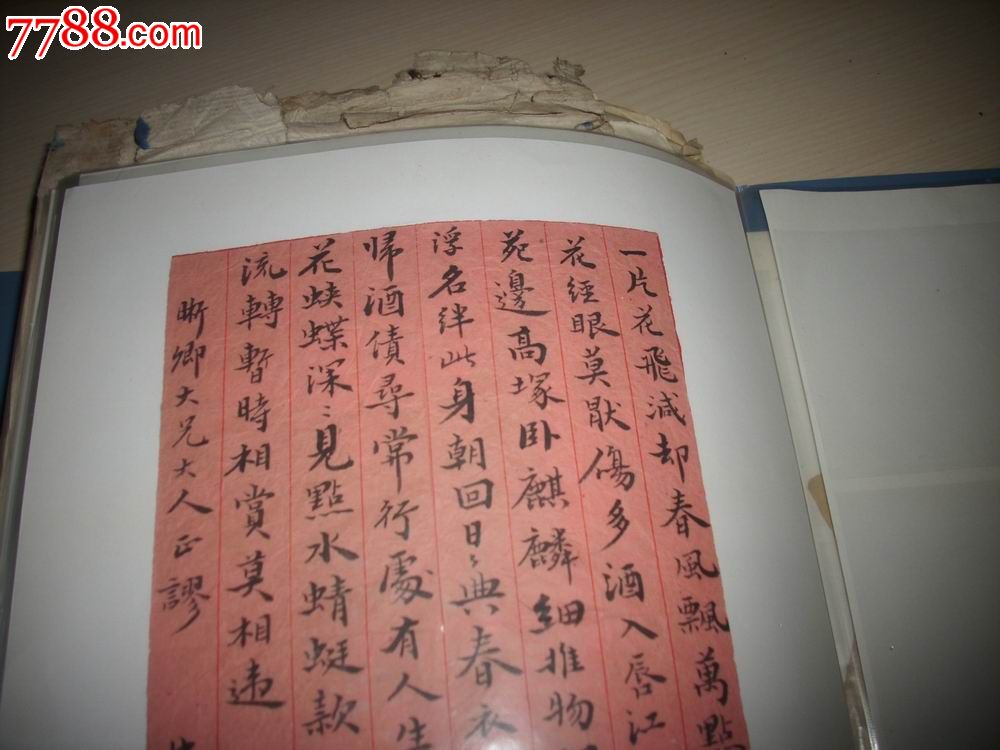 7788.com
一片花飛減却春風飄萬點
花經眼莫厭傷多酒入唇江
苑邊高塚卧麒麟細推物
浮名絆此身朝回日〻典春衣
歸酒債尋常行處有人生
花蛺蝶深〻見點水蜻蜓款
流轉暫時相賞莫相違
晰卿大兄大人正謬